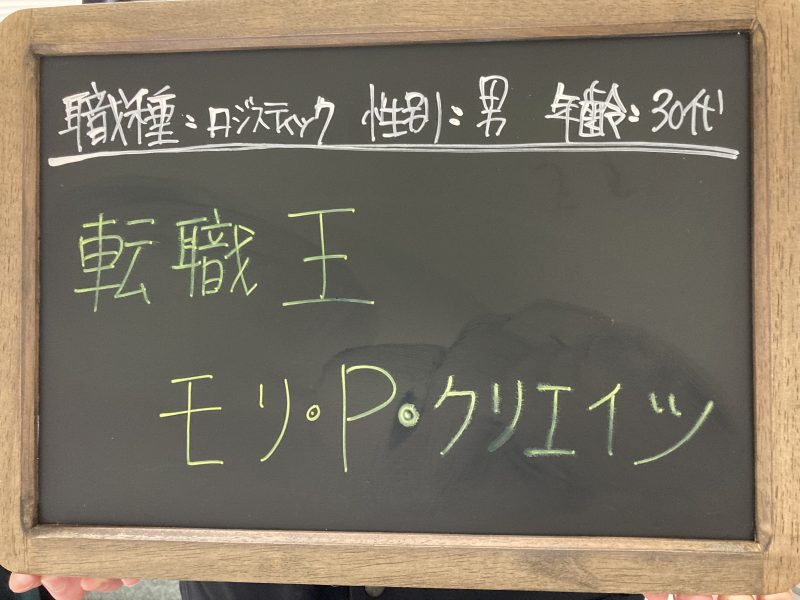 職種：ロジスティック 性別：男 年齢：30代
転職王
モリ・P・クリエイツ